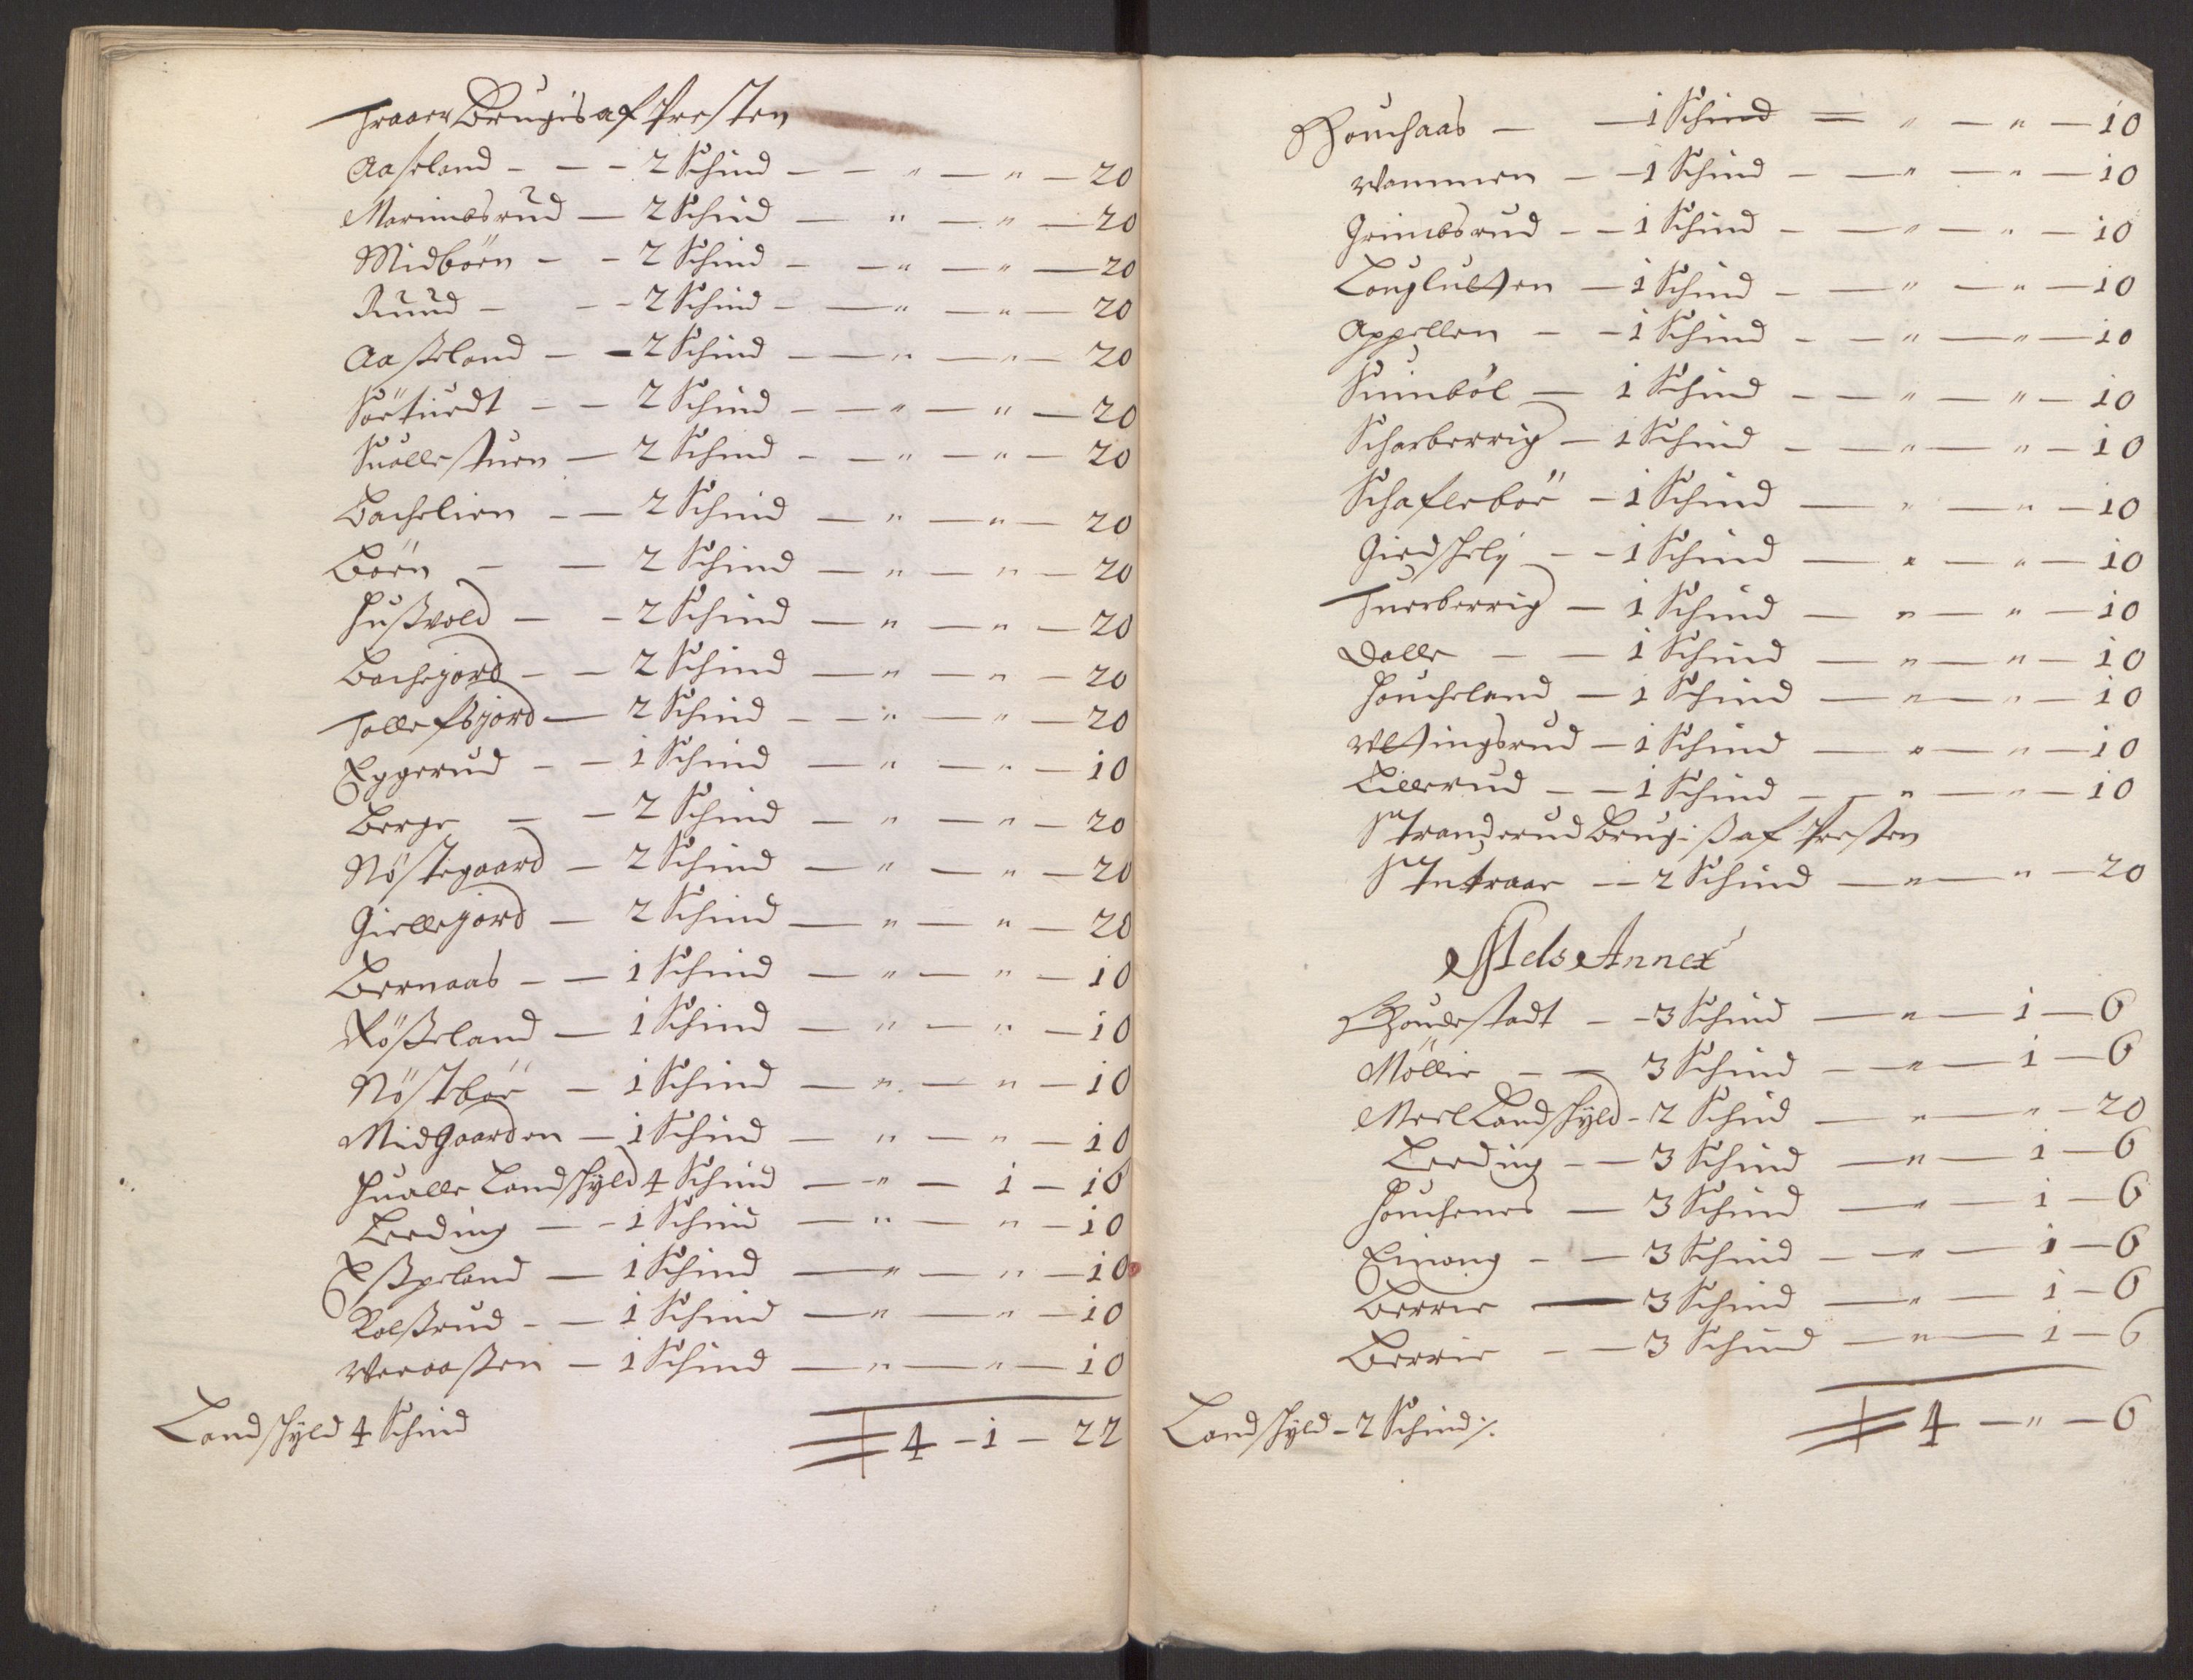 Traaen Brugis af Presten
Aaseland - - - 2 Schind - - " - " - 20
Marimbsrud - 2 Schind - " - " - 20
Midböen - - 2 Schind - - " - " - 20
Ruud - - - 2 Schind - - " - " - 20
Aaßeland - - 2 Schind - - " - " - 20
Sörtuedt - - 2 Schind - - " - " - 20
Suallestuen - 2 Schind - - " - " - 20
Bachelien - - 2 Schind - " - " - 20
Böen - - 2 Schind - " - " - 20
Hußvold - - 2 Schind - " - " - 20
Bachejord - - 2 Schind - " - " - 20
Tollefsjord - 2 Schind - - " - " - 20
Eggerud - - 1 Schind - " - " - 10
Berge - - 2 Schind - " - " - 20
Nöstegaard - 2 Schind - " - " - 20
Giellejord - 2 Schind - " - " - 20
Bernaas - - 1 Schind - " - " - 10
Rößeland - 1 Schind - " - " - 10
Nösteböe - 1 Schind - " - " - 10
Midgaarden - 1 Schind - " - " - 10
Hualle Landschyld 4 Schind - " - 1 - 16
Leeding - - 1 Schind - " - " - 10
Eßpeland - 1 Schind - " - " - 10
Kolßrud - - 1 Schind - " - " - 10
Weraaßen - 1 Schind - " - " - 10
Landschyld 4 Schind 4 - 1 - 22
Houchaas - - 1 Schind - " - " - 10
Wammen - - 1 Schind - - " - " - 10
Grimbsrud - - 1 Schind - - " - " - 10
Langlutten - 1 Schind - - " - " - 10
Appellen - - 1 Schind - - " - " - 10
Suinböl - 1 Schind - - " - " - 10
Scharberrig - 1 Schind - - " - " - 10
Schafleböe - 1 Schind - " - " - 10
Giedschelj - - 1 Schind - " - " - 10
Tuerberrig - 1 Schind - " - " - 10
Dalle - - 1 Schind - " - " - 10
Houcheland - 1 Schind - " - " - 10
Wettingsrud - 1 Schind - " - " - 10
Lillerud - - 1 Schind - - " - " - 10
Stranderud Brugis af Presten
Stutraae - 2 Schind - " - " - 20
Mels Annex
Houdestadt - - 3 Schind - " - 1 - 6
Möllie - - 3 Schind - " - 1 - 6
Meel Landschyld - 2 Schind - " - " - 20
Leeding - - 3 Schind - " - 1 - 6
Houchenes - 3 Schind - " - 1 - 6
Einong - - 3 Schind - - " - 1 - 6
Berrie - 3 Schind - " - 1 - 6
Berrie - - 3 Schind - " - 1 - 6
Landschyld - 2 Schind /. 4 - " - 6